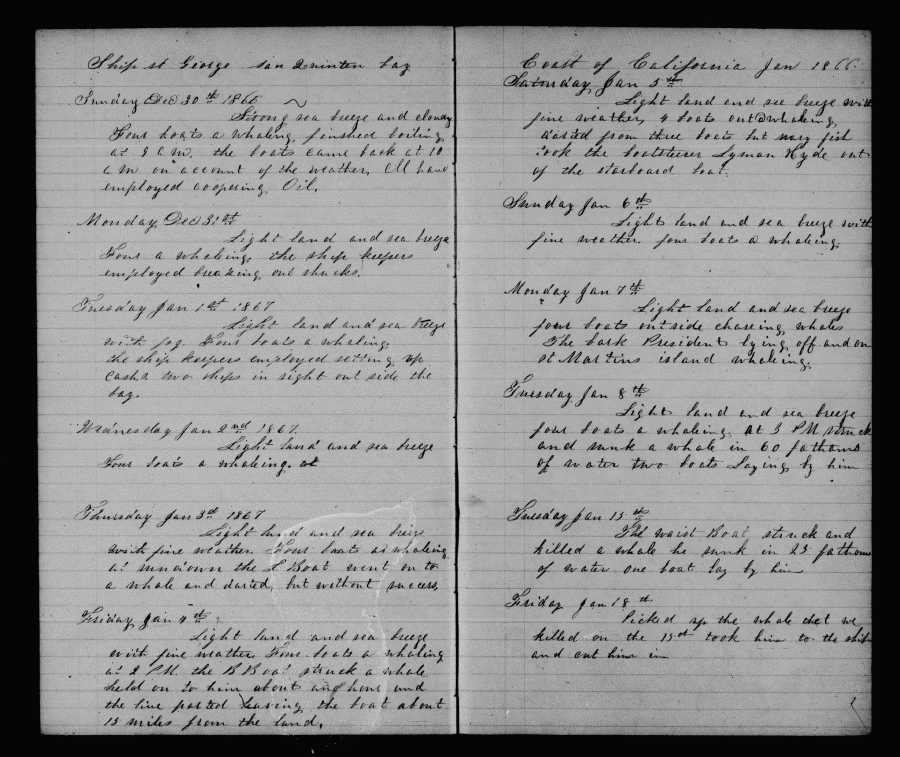 Ship st George san Quinten bay
Sunday Dec 30th 1866
Strong sea breeze and cloudy
Four boats a whaling, finished boiling
at 9 a m. the boats came back at 10
a m on account of the weather, All hand
employed coopering Oil.
Monday, Dec 31st
Light land and sea breeze
Four a whaleing, the ship keepers
employed breaking out shucks.
Tuesday Jan 1st 1867
Light land and sea breeze
with fog. Four boats a whaling,
the ship keepers employed setting up
casks. two ships in sight out side the
bay.
Wednesday Jan 2nd 1867.
Light land and sea breeze
Four boats a whaleing. at
Thursday Jan 3rd 1867
Light land and sea breeze
with fine weather. Four boats a whaleing
at sundown the L Boat went on to
a whale and darted, but without success,
Friday, Jan 4th
Light land and sea breeze
with fine weather, Four boats a whaling
at 2 PM. the B Boat struck a whale
held on to him about an hour and
the line parted leaving the boat about
15 miles from the land.
Coast of California Jan 1866.
Saturday, Jan 5th
Light land and sea breeze with
fine weather, 4 boats out a whaleing,
darted from three boats but no fish
took the boatsteerer Lyman Hyde out
of the starboard boat.
Sunday Jan 6th
Light land and sea breeze with
fine weather. four boats a whaleing.
Monday Jan 7th
Light land and sea breeze
four boats outside chaseing whales
The bark President lying off and on
at Martins island whaleing.
Tuesday Jan 8th
Light land and sea breeze
four boats a whaleing. at 3 PM struck
and sunk a whale in 60 fathoms
of water two boats Laying by him
Tuesday Jan 15th
The waist Boat struck and
killed a whale he sunk in 25 fathoms
of water one boat lay by him
Friday Jan 18th
Picked up the whale that we
killed on the 15th took him to the ship
and cut him in